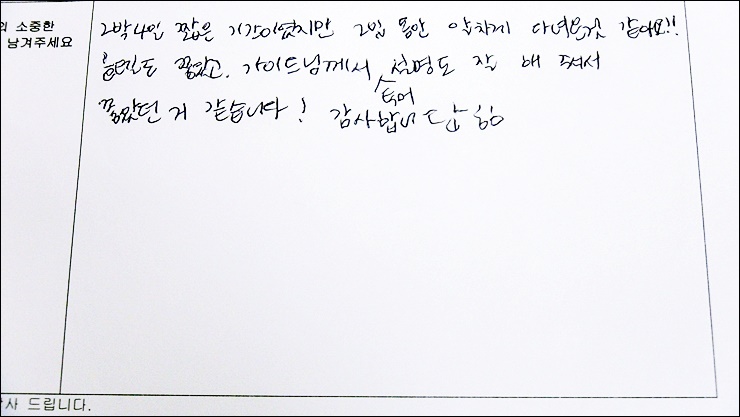 의 소중한
남겨주세요
2박4일 짧은 기간이였지만 2일 동안 알차게 다녀온것 같아요!!
호텔도 좋았고. 가이드님께서 설명도 잘 해 주셔서
투어
좋았던 거 같습니다! 감사합니다
사 드립니다.